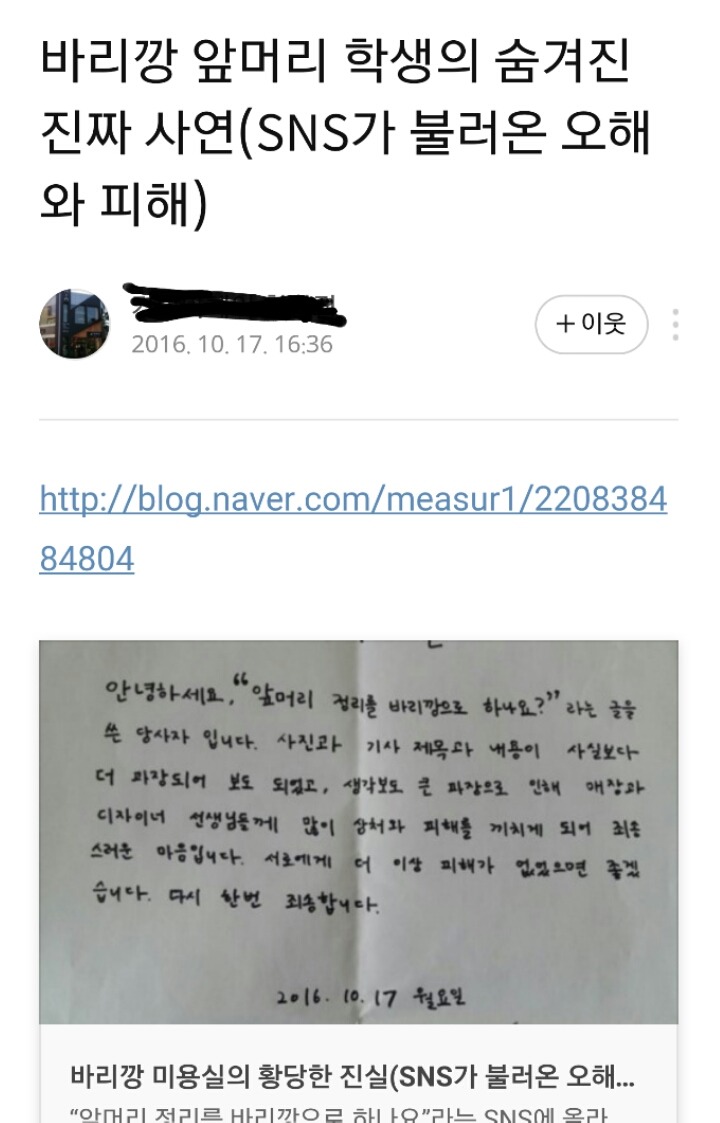 바리깡 앞머리 학생의 숨겨진
진짜 사연(SNS가 불러온 오해
와 피해)
2016. 10. 17. 16:36
+ 이웃
http://blog.naver.com/measur1/2208384
84804
안녕하세요, “앞머리 정리를 바리깡으로 하나요?” 라는 글을
쓴 당사자 입니다. 사진과 기사 제목과 내용이 사실보다
더 과장되어 보도 되었고, 생각보도 큰 파장으로 인해 매장과
디자이너 선생님들께 많이 상처와 피해를 끼치게 되어 죄송
스러운 마음입니다. 서로에게 더 이상 피해가 없었으면 좋겠
습니다. 다시 한번 죄송합니다.
2016. 10. 17 월요일
바리깡 미용실의 황당한 진실(SNS가 불러온 오해...
“앞머리 정리를 바리깡으로 하나요”라는 SNS에 올라